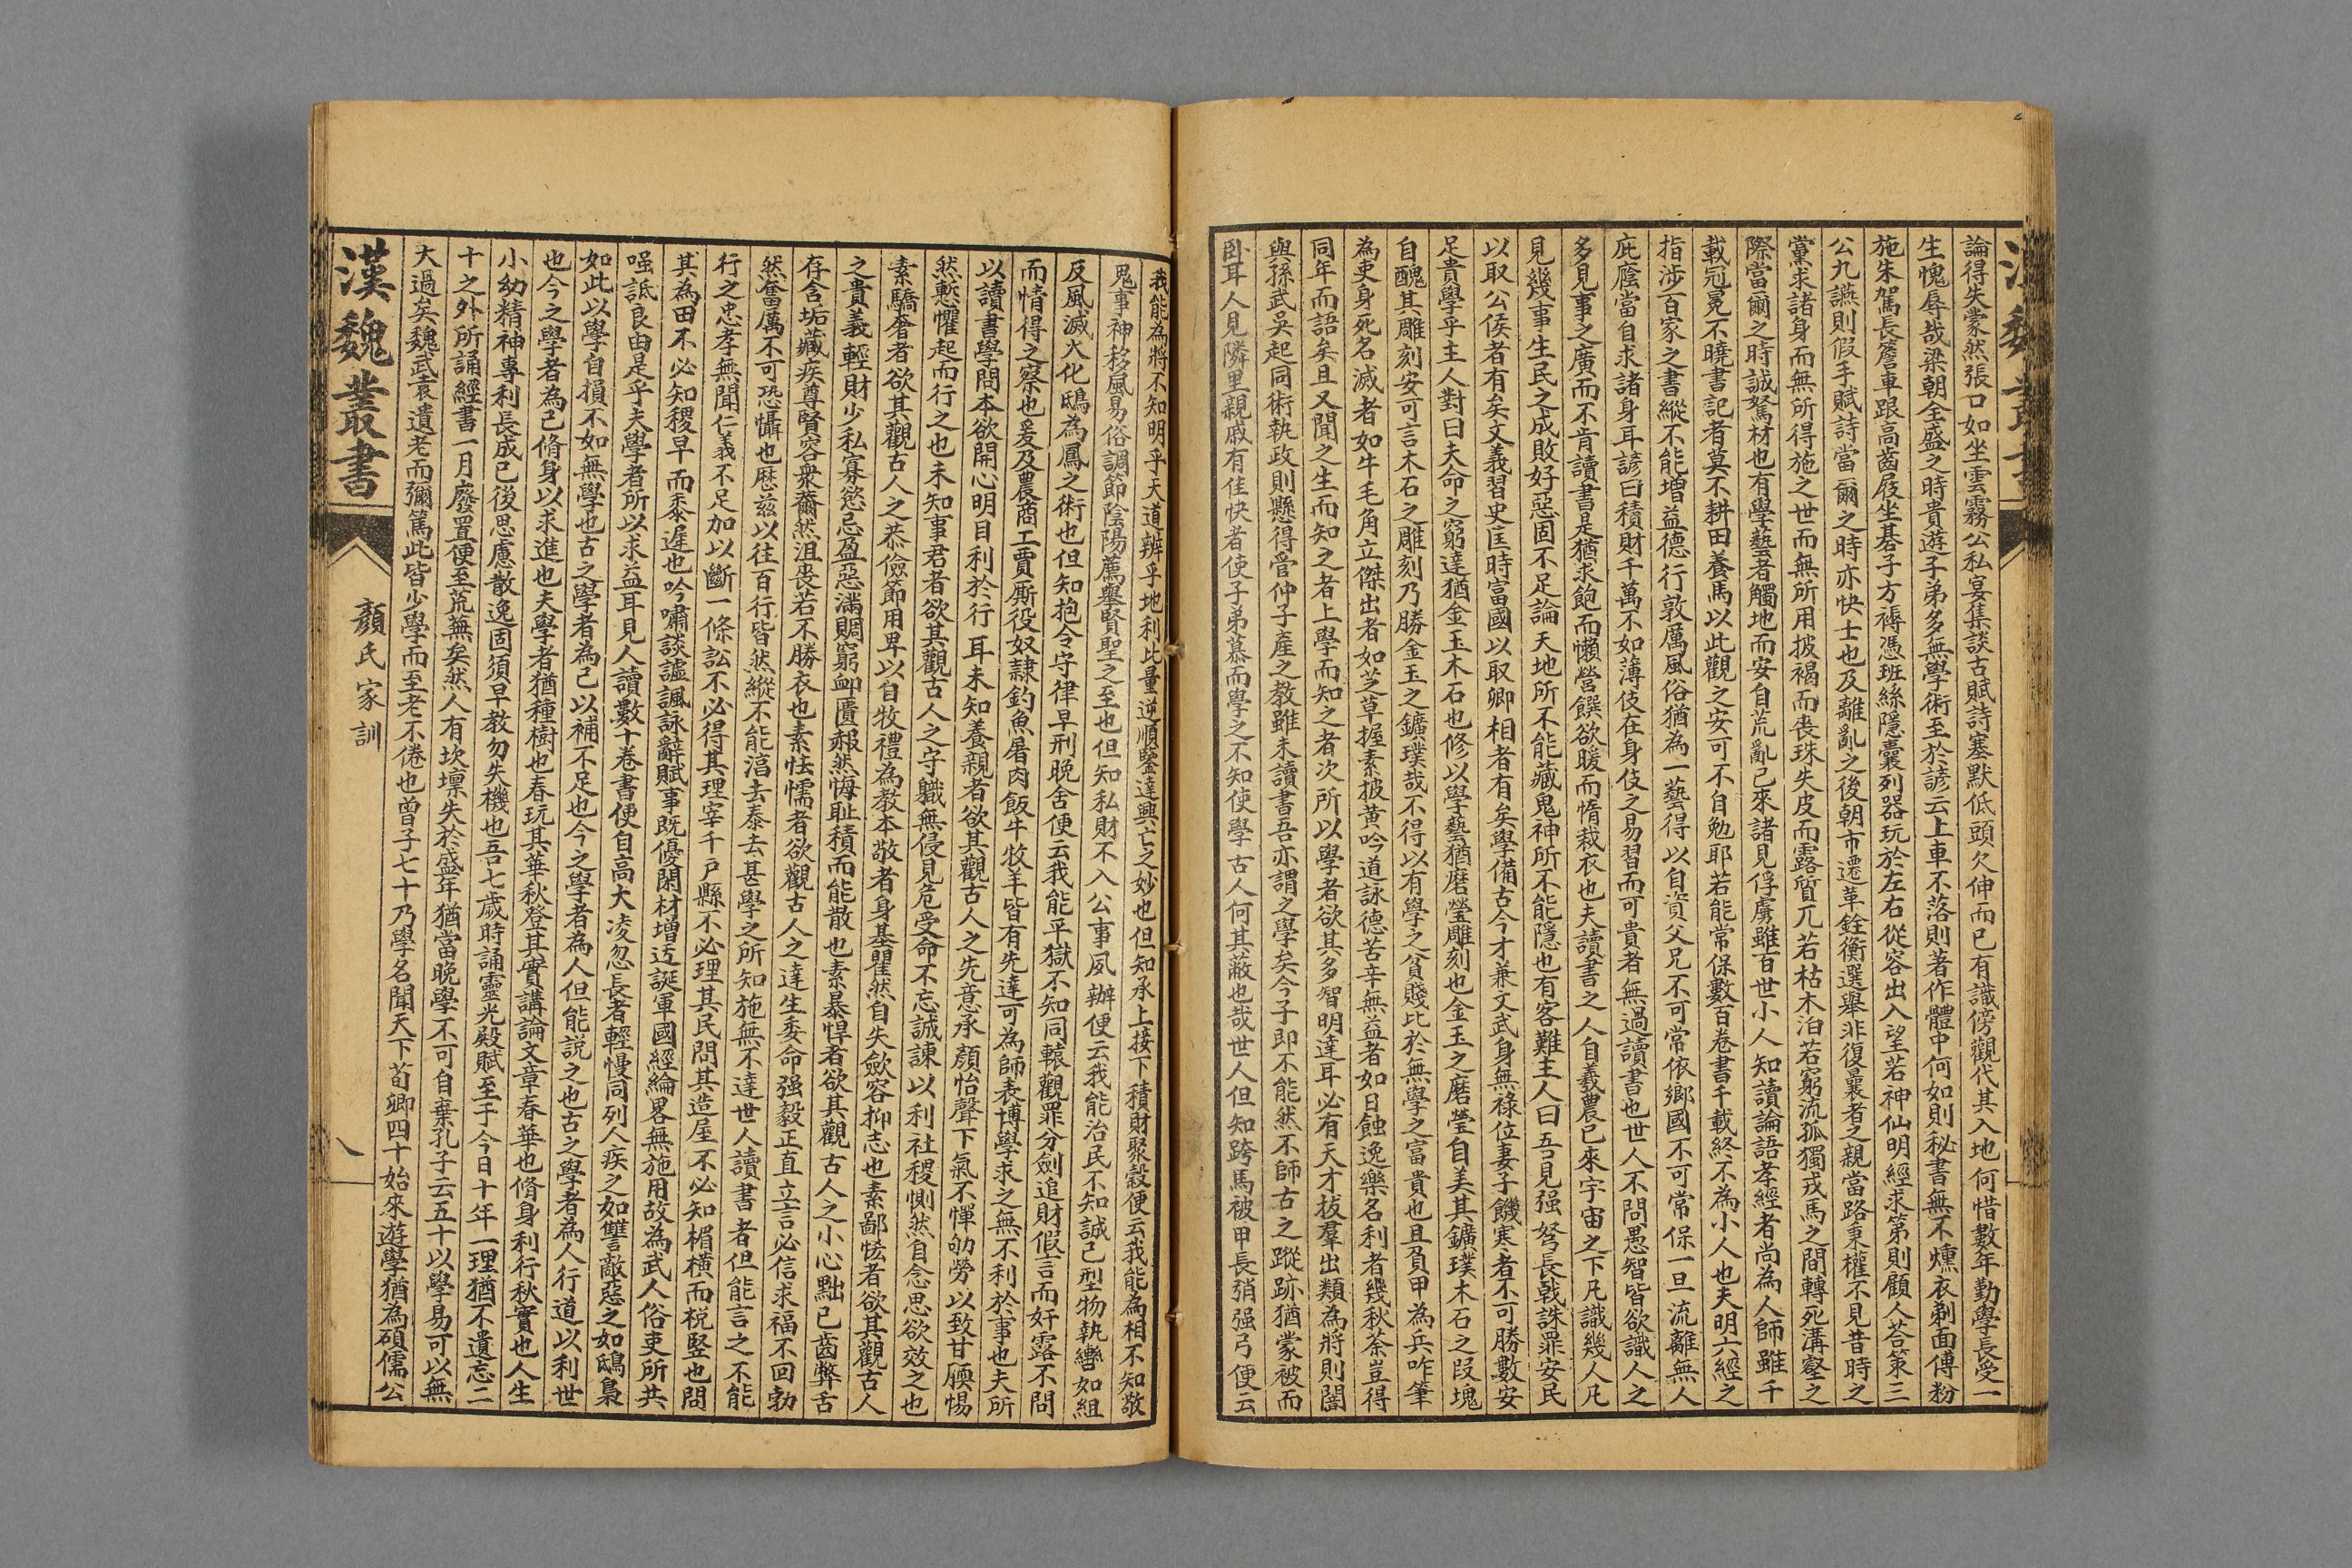 論得失蒙然張口如坐雲霧公私宴集談古賦詩塞默低頭欠伸而已有識傍觀代其入地何惜數年勤學長受一
生愧辱哉梁朝全盛之時貴遊子弟多無學術至於諺云上車不落則著作體中何如則秘書無不燻衣剃面傅粉
施朱駕長簷車跟高齒屐坐棊子方褥憑班絲隱囊列器玩於左右從容出入望若神仙明經求第則顧人荅策三
公九讌則假手賦詩當爾之時亦快士也及離亂之後朝市遷革銓衡選舉非復曩者之親當路秉權不見昔時之
黨求諸身而無所得施之世而無所用披褐而喪珠失皮而露質兀若枯木泊若窮流孤獨戎馬之間轉死溝壑之
際當爾之時誠駑材也有學藝者觸地而安自荒亂已來諸見俘虜雖百世小人知讀論語孝經者尚為人師雖千
載冠冕不曉書記者莫不耕田養馬以此觀之安可不自勉耶若能常保數百卷書千載終不為小人也夫明六經之
指涉百家之書縱不能增益德行敦厲風俗猶為一藝得以自資父兄不可常依鄉國不可常保一旦流離無人
庇廕當自求諸身耳諺曰積財千萬不如薄伎在身伎之易習而可貴者無過讀書也世人不問愚智皆欲識人之
多見事之廣而不肯讀書是猶求飽而懶營饌欲暖而惰裁衣也夫讀書之人自羲農已來宇宙之下凡識幾人凡
見幾事生民之成敗好惡固不足論天地所不能藏鬼神所不能隱也有客難主人曰吾見强弩長戟誅罪安民
以取公侯者有矣文義習史匡時富國以取卿相者有矣學備古今才兼文武身無祿位妻子饑寒者不可勝數安
足貴學乎主人對曰夫命之窮達猶金玉木石也修以學藝猶磨瑩雕刻也金玉之磨瑩自美其鑛璞木石之段塊
自醜其雕刻安可言木石之雕刻乃勝金玉之鑛璞哉不得以有學之貧賤比於無學之富貴也且負甲為兵咋筆
為吏身死名滅者如牛毛角立傑出者如芝草握素披黄吟道詠德苦辛無益者如日蝕逸樂名利者幾秋荼豈得
同年而語矣且又聞之生而知之者上學而知之者次所以學者欲其多智明達耳必有天才拔羣出類為將則闇
與孫武吳起同術執政則懸得管仲子產之教雖未讀書吾亦謂之學矣今子即不能然不師古之蹤跡猶蒙被而
卧耳人見隣里親戚有佳快者使子弟慕而學之不知使學古人何其蔽也哉世人但知跨馬被甲長矟强弓便云
我能為將不知明乎天道辨乎地利比量逆順鑒達興亡之妙也但知承上接下積財聚穀便云我能為相不知敬
鬼事神移風易俗調節陰陽薦舉賢聖之至也但知私財不入公事夙辦便云我能治民不知誠己型物執轡如組
反風滅火化鴟為鳳之術也但知抱令守律早刑晚舍便云我能平獄不知同轅觀罪分劍追財假言而奸露不問
而情得之察也爰及農商工賈廝役奴隸釣魚屠肉飯牛牧羊皆有先達可為師表博學求之無不利於事也夫所
以讀書學問本欲開心明目利於行耳未知養親者欲其觀古人之先意承顏怡聲下氣不憚劬勞以致甘腝惕
然慙懼起而行之也未知事君者欲其觀古人之守職無侵見危受命不忘誠諫以利社稷惻然自念思欲效之也
素驕奢者欲其觀古人之恭儉節用卑以自牧禮為教本敬者身基瞿然自失歛容抑志也素鄙恡者欲其觀古人
之貴義輕財少私寡慾忌盈惡滿賙窮卹匱赧然悔耻積而能散也素暴悍者欲其觀古人之小心黜已齒弊舌
存含垢藏疾尊賢容衆薾然沮喪若不勝衣也素怯懦者欲觀古人之達生委命强毅正直立言必信求福不回勃
然奮厲不可恐懾也歷兹以往百行皆然縱不能淳去泰去甚學之所知施無不達世人讀書者但能言之不能
行之忠孝無聞仁義不足加以斷一條訟不必得其理宰千户縣不必理其民問其造屋不必知楣橫而梲竪也問
其為田不必知稷早而黍遲也吟嘯談謔諷詠辭賦事既優閑材增迂誕軍國經綸畧無施用故為武人俗吏所共
嗤詆良由是乎夫學者所以求益耳見人讀數十卷書便自高大凌忽長者輕慢同列人疾之如讐敵惡之如鴟梟
如此以學自損不如無學也古之學者為己以補不足也今之學者為人但能說之也古之學者為人行道以利世
也今之學者為己脩身以求進也夫學者猶種樹也春玩其華秋登其實講論文章春華也脩身利行秋實也人生
小幼精神專利長成已後思慮散逸固須早教勿失機也吾七歲時誦靈光殿賦至于今日十年一理猶不遺忘二
十之外所誦經書一月廢置便至荒蕪矣然人有坎壈失於盛年猶當晚學不可自棄孔子云五十以學易可以無
大過矣魏武袁遺老而彌篤此皆少學而至老不倦也曾子七十乃學名聞天下荀卿四十始來遊學猶為碩儒公
漢魏叢書
顏氏家訓
八